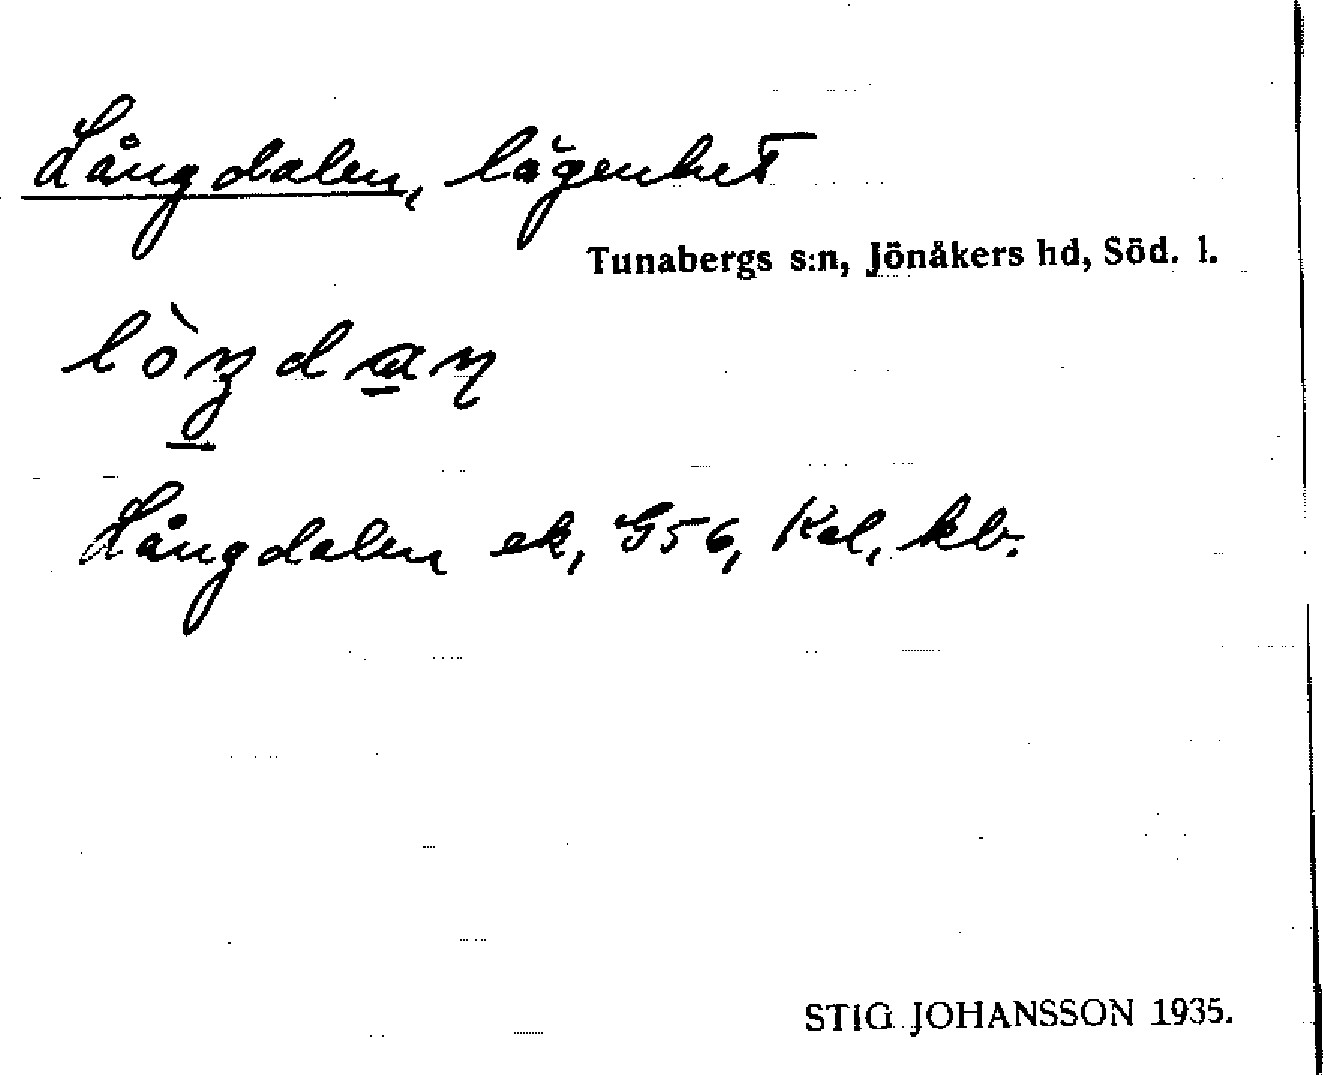 Långdalen, lägenhet
Tunabergs s:n, Jönåkers hd, Söd. l.
Långdalen ek, G56, Kal, kb.
STIG JOHANSSON 1935.